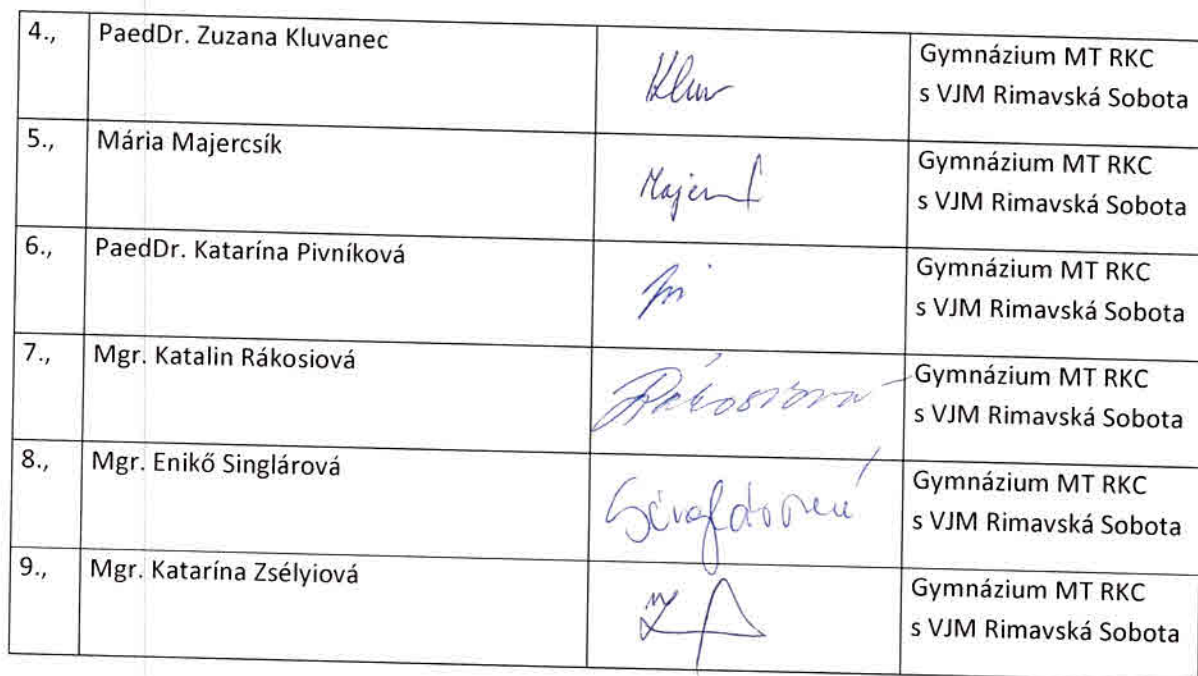 4., PaedDr. Zuzana Kluvanec Gymnázium MT RKC
s VJM Rimavská Sobota
5., Mária Majercsík Gymnázium MT RKC
s VJM Rimavská Sobota
6., PaedDr. Katarína Pivníková Gymnázium MT RKC
s VJM Rimavská Sobota
7., Mgr. Katalin Rákosiová Rákosiová Gymnázium MT RKC
s VJM Rimavská Sobota
8., Mgr. Enikő Singlárová Gymnázium MT RKC
s VJM Rimavská Sobota
9., Mgr. Katarína Zsélyiová Gymnázium MT RKC
s VJM Rimavská Sobota